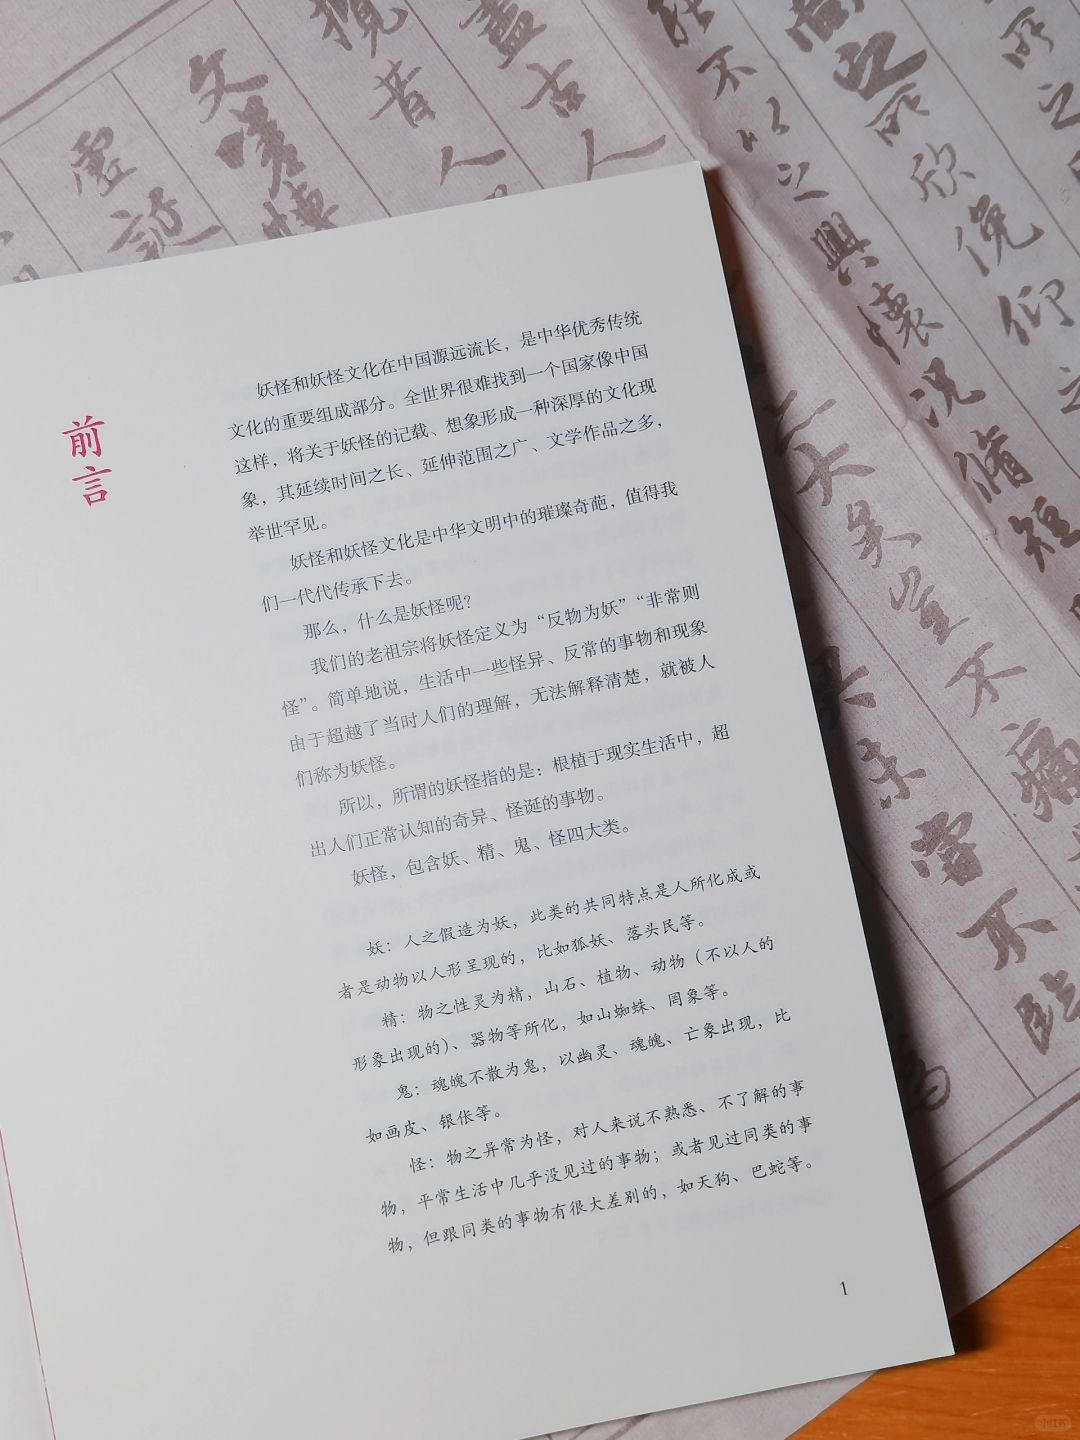 前言
妖怪和妖怪文化在中国源远流长，是中华优秀传统
文化的重要组成部分。全世界很难找到一个国家像中国
这样，将关于妖怪的记载、想象形成一种深厚的文化现
象，其延续时间之长、延伸范围之广、文学作品之多，
举世罕见。
妖怪和妖怪文化是中华文明中的璀璨奇葩，值得我
们一代代传承下去。
那么，什么是妖怪呢？
我们的老祖宗将妖怪定义为“反物为妖”“非常则
怪”。简单地说，生活中一些怪异、反常的事物和现象
由于超越了当时人们的理解，无法解释清楚，就被人
们称为妖怪。
所以，所谓的妖怪指的是：根植于现实生活中，超
出人们正常认知的奇异、怪诞的事物。
妖怪，包含妖、精、鬼、怪四大类。
妖：人之假造为妖，此类的共同特点是人所化成或
者是动物以人形呈现的，比如狐妖、落头民等。
精：物之性灵为精，山石、植物、动物（不以人的
形象出现的）、器物等所化，如山蜘蛛、罔象等。
鬼：魂魄不散为鬼，以幽灵、魂魄、亡象出现，比
如画皮、银伥等。
怪：物之异常为怪，对人来说不熟悉、不了解的事
物，平常生活中几乎没见过的事物；或者见过同类的事
物，但跟同类的事物有很大差别的，如天狗、巴蛇等。
1
所之
欣俛仰之
能不以之興懷況脩短
大矣豈不痛
攬昔人
未嘗不臨
文嗟悼
虛誕
小红书